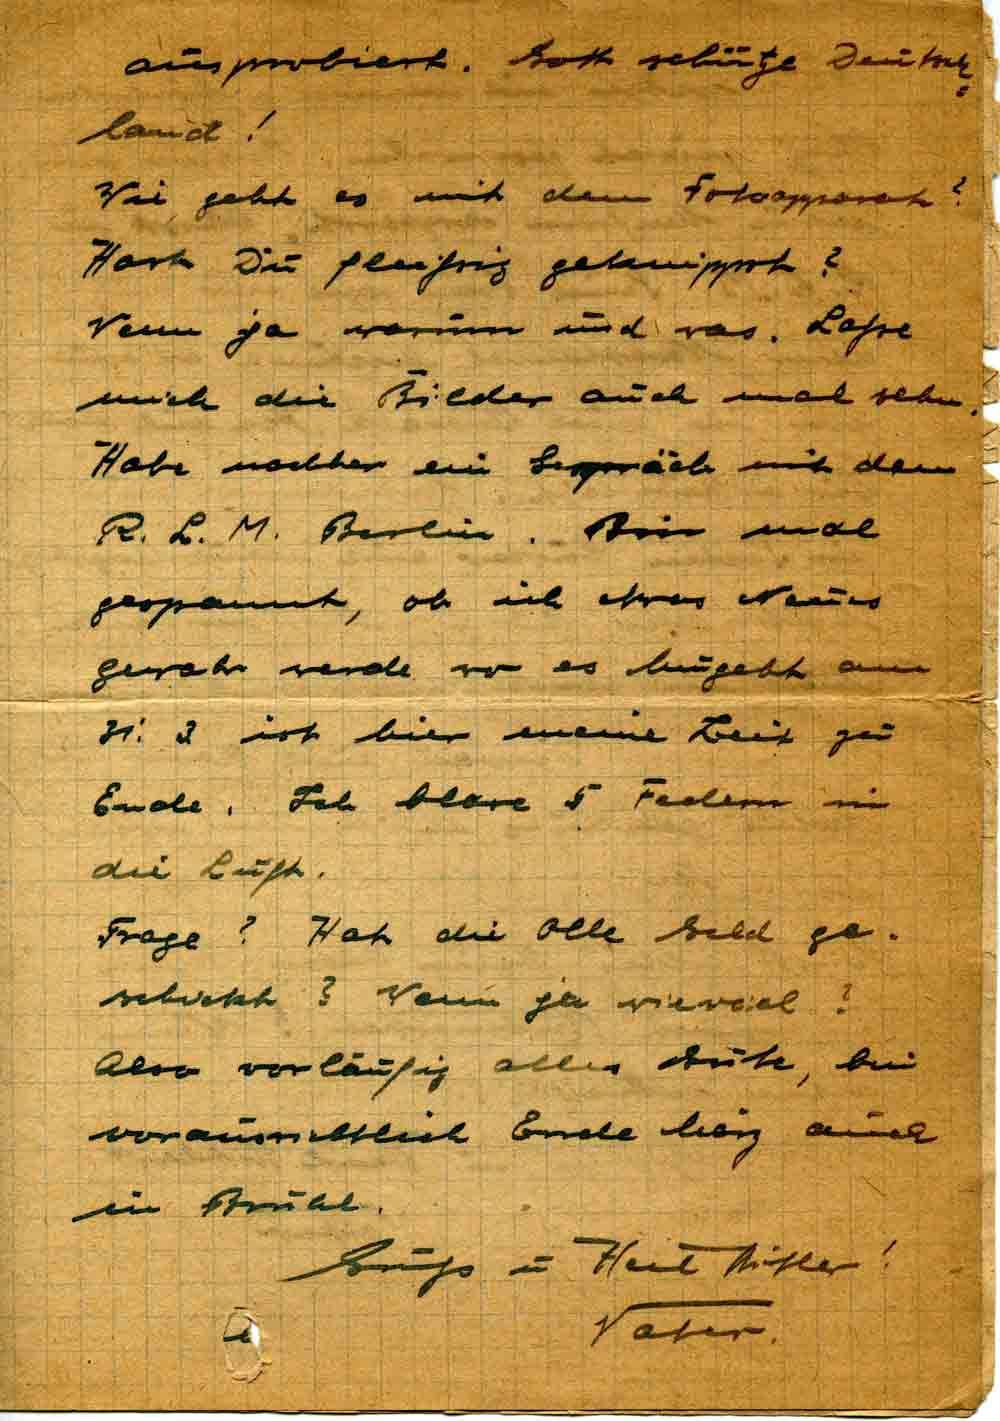 ausprobiert. Gott schütze Deutsch=
land!
Wie geht es mit dem Fotoapparat?
Hast Du fleißig geknippst?
Wenn ja warum und was. Lasse
mich die Bilder auch mal sehn.
Habe nachher ein Gespräch mit dem
R. L. M. Berlin. Bin mal
gespannt, ob ich etwas Neues
gewahr werde wo es hingeht am
31. 3 ist hier meine Zeit zu
Ende. Ich blase 5 Federn in
die Luft.
Frage? Hat die Olle Geld ge-
schickt? Wenn ja wieviel?
Also vorläufig alles Gute, bin
voraussichtlich Ende März auch
in Brühl.
Gruß u Heil Hitler!
Vater.